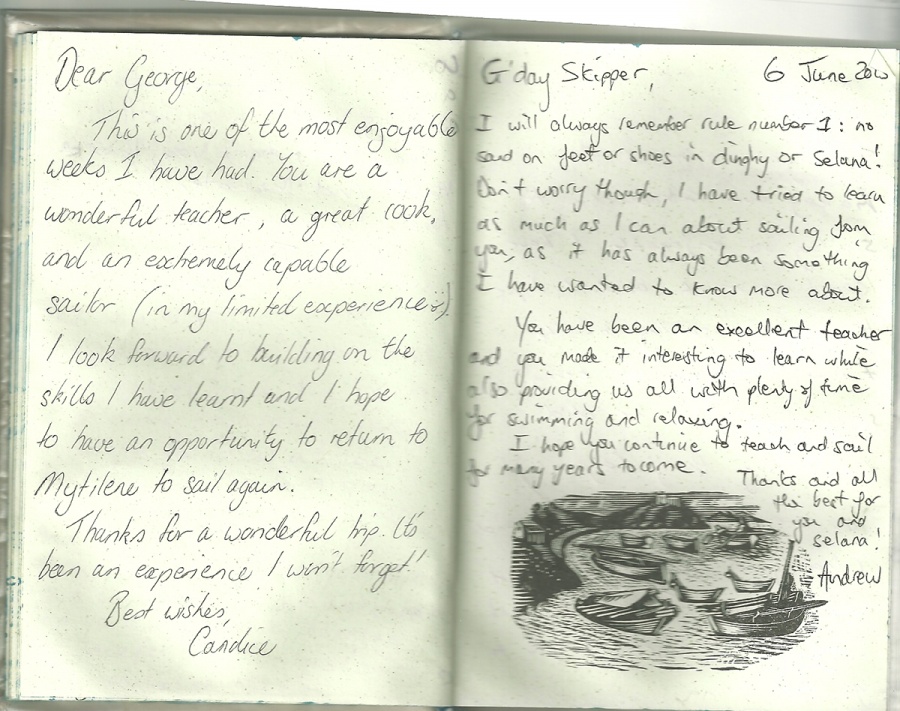 Dear George,
This is one of the most enjoyable
weeks I have had. You are a
wonderful teacher, a great cook,
and an extremely capable
sailor (in my limited experience).
I look forward to building on the
skills I have learnt and I hope
to have an opportunity to return to
Mytilene to sail again.
Thanks for a wonderful trip. It's
been an experience I won't forget!
Best wishes,
Candice
G'day Skipper, 6 June
I will always remember rule number 1: no
sand on feet or shoes in dinghy or Selana!
Don't worry though, I have tried to learn
as much as I can about sailing from
you, as it has always been something
I have wanted to know more about.
You have been an excellent teacher
and you made it interesting to learn while
also providing us all with plenty of time
for swimming and relaxing.
I hope you continue to teach and sail
for many years to come.
Thanks and all
the best for
you and
selana!
Andrew